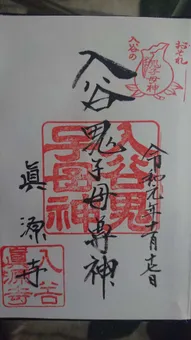 おそれ
入谷の
鬼子母神
入谷鬼子母尊神
入谷鬼
子母神
令和元年十一月廿日
眞源寺
入谷
眞源寺